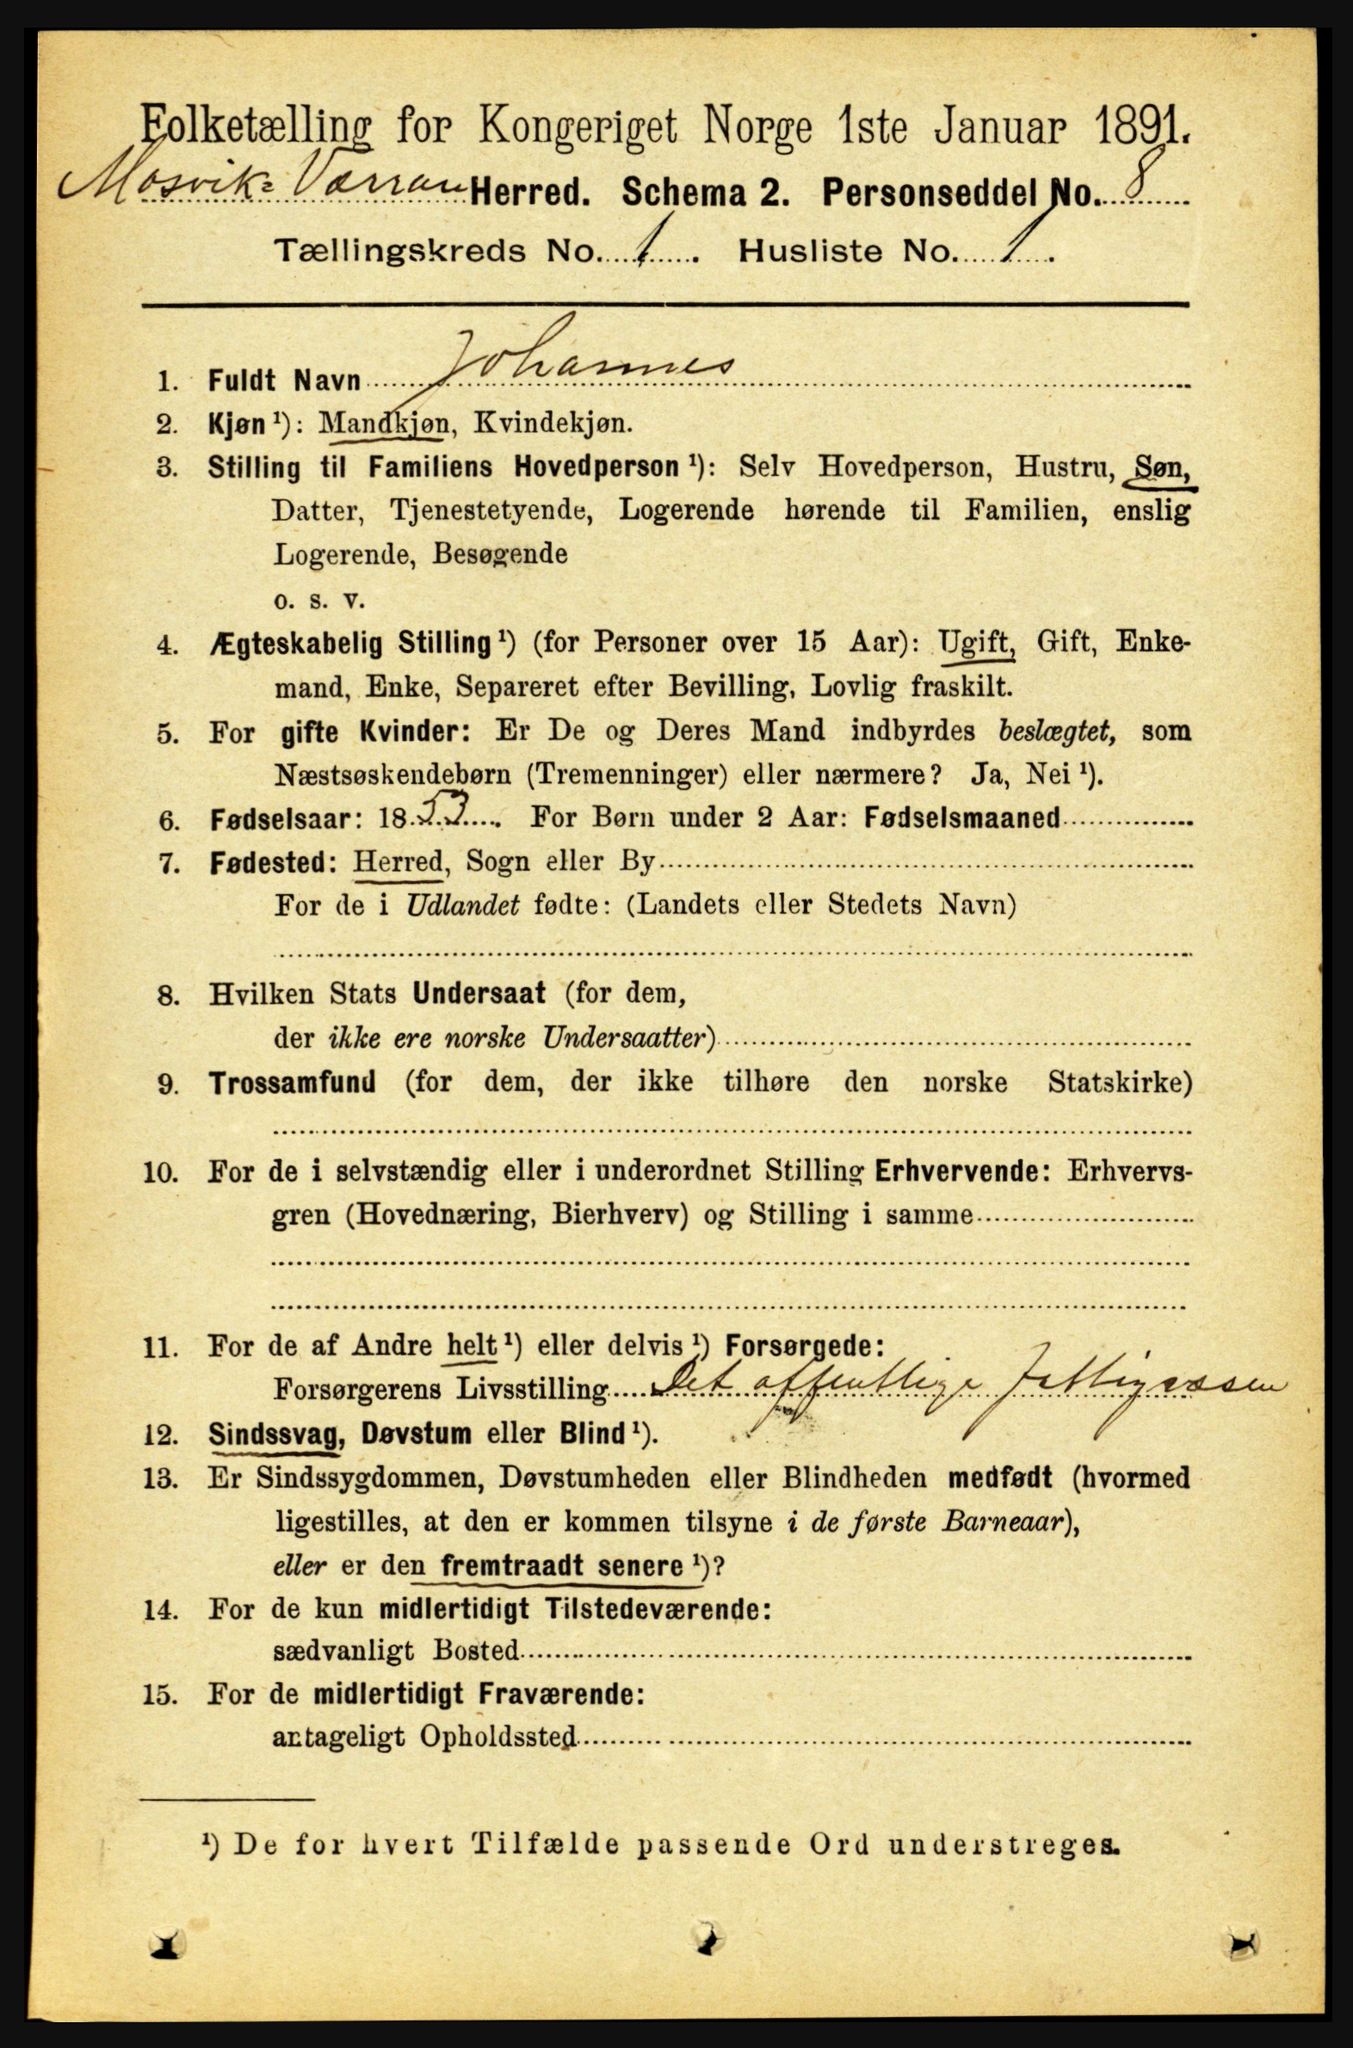 Folketælling for Kongeriget Norge 1ste Januar 1891.
Mosvik & Værran Herred. Schema 2. Personseddel No. 8
Tællingskreds No. 1. Husliste No. 1.
1. Fuldt Navn Johannes
2. Kjøn ¹): Mandkjøn, Kvindekjøn.
3. Stilling til Familiens Hovedperson ¹): Selv Hovedperson, Hustru, Søn,
Datter, Tjenestetyende, Logerende hørende til Familien, enslig
Logerende, Besøgende
o. s. v.
4. Ægteskabelig Stilling ¹) (for Personer over 15 Aar): Ugift, Gift, Enke-
mand, Enke, Separeret efter Bevilling, Lovlig fraskilt.
5. For gifte Kvinder: Er De og Deres Mand indbyrdes beslægtet, som
Næstsøskendebørn (Tremenninger) eller nærmere? Ja, Nei ¹).
6. Fødselsaar: 1853. For Børn under 2 Aar: Fødselsmaaned
7. Fødested: Herred, Sogn eller By
For de i Udlandet fødte: (Landets eller Stedets Navn)
8. Hvilken Stats Undersaat (for dem,
der ikke ere norske Undersaatter)
9. Trossamfund (for dem, der ikke tilhøre den norske Statskirke)
10. For de i selvstændig eller i underordnet Stilling Erhvervende: Erhvervs-
gren (Hovednæring, Bierhverv) og Stilling i samme
11. For de af Andre helt ¹) eller delvis ¹) Forsørgede:
Forsørgerens Livsstilling Det offentlige
12. Sindssvag, Døvstum eller Blind ¹).
13. Er Sindssygdommen, Døvstumheden eller Blindheden medfødt (hvormed
ligestilles, at den er kommen tilsyne i de første Barneaar),
eller er den fremtraadt senere ¹)?
14. For de kun midlertidigt Tilstedeværende:
sædvanligt Bosted
15. For de midlertidigt Fraværende:
antageligt Opholdssted
¹) De for hvert Tilfælde passende Ord understreges.